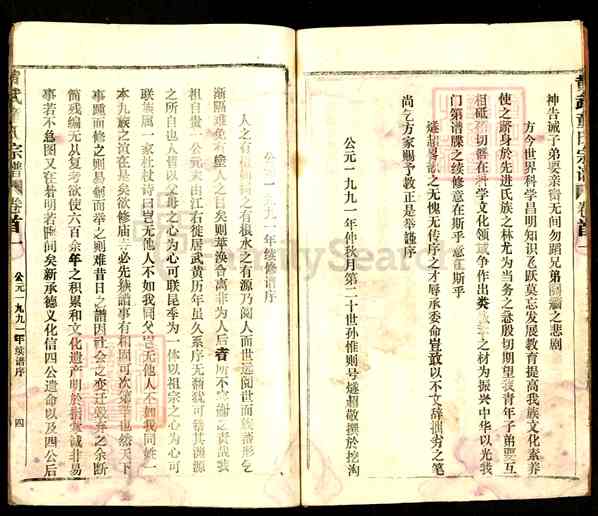 神告诫子弟要亲贤无间勿蹈兄弟阋墙之悲剧
方今世界科学昌明知识飞跃莫忘发展教育提高我族文化素养
使之跻身於先进氏族之林尤为当务之急殷切期望我青年子弟要互
相砥砺切磋在科学文化领域争作出类拔萃之材为振兴中华以光我
门第谱牒之续修意在斯乎意在斯乎
燧超才之无愧无传序之才辱承委命岂敢以不文辞拙劣之笔
尚乞方家赐予教正是举谨序
公元一九九一年仲秋月第二十世孙惟则号燧超敬撰於挖沟
黄武章氏宗谱 卷首一
公元一九九一年续谱序
人之有祖犹木之有根水之有源乃阅人而世远阅世而族蕃形乞
渐隔难免有途人之目矣则萃涣合离非为人后者所不容谢之责哉我
祖自贵一公元末由江右徙居武黄历年虽久系序无翻犹可籍其渊源
之所自也人皆以父母之心为心可联昆季为一体以祖宗之心为心可
联族属一家杕杜诗曰岂无他人不如我同父岂无他人不如我同姓一
本九族之谊在是矣欲修庙者必先族谱事有相因可次第举也然天下
事踵而修之则易创而举之则难昔日之谱因社会之变迁毁弃之余断
简残编无从复考欲使六百余年之积累和文化遗产明於指掌诚非易
事若不急图又在若明若昧间矣新承德义化信四公遗命以及四公后
宗谱 卷首一
公元一九九一年续谱序
四
FamilySearch